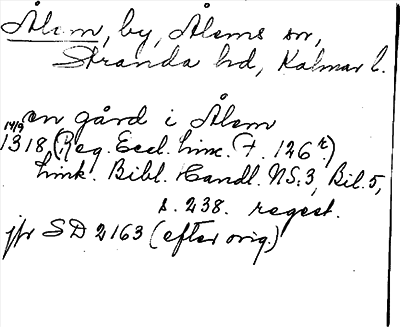 Ålem, by, Ålems sn,
Stranda hd, Kalmar l.
en gård i Ålem
14/9
1318, (Reg. Eccl. Linc. F. 126r.)
Link. Bibl. Handl. NS:3, Bil.5,
s. 238. regest.
jfr SD 2163 (efter orig.)